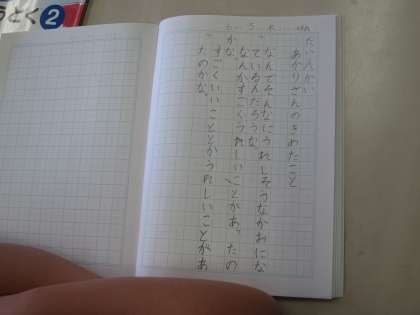 だいめい
あかりさんのきめたこと
なんでそんなにうれしそうなかおにな
っているんだろうな。
なんかすごくうれしいことがあったの
かな。
すごくいいこととかうれしいことがあ
ったのかな。
とく2